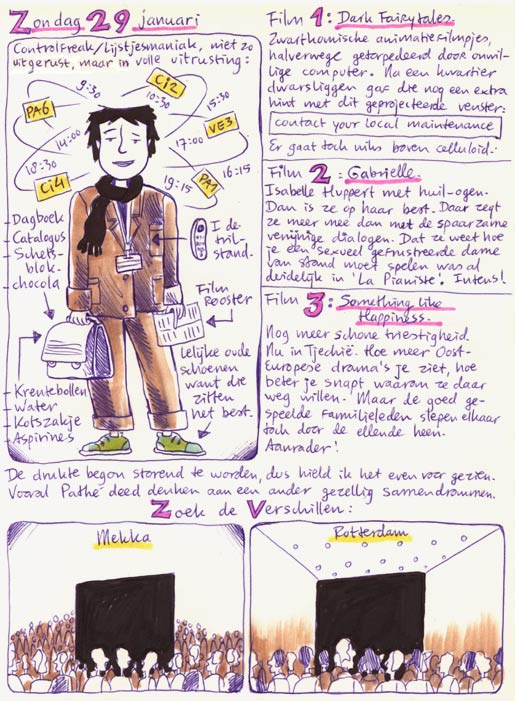 Zondag 29 januari
Controlfreak/lijstjesmaniak, niet zo
uitgerust, maar in volle uitrusting:
9:30
Ci2
10:30
15:30
PA6
VE3
14:00
17:00
16:15
18:30
Ci4
19:15
PA1
Dagboek
Catalogus
Schets-
blok
chocola
I de
tril-
stand.
Film
Rooster
Lelijke oude
schoenen
want die
zitten
het best.
Krentebollen
Water
Kotszakje
Aspirines
Film 1: Dark Fairytales
Zwartkomische animatiefilmpjes,
halverwege getorpedeerd door onwil-
lige computer. Na een kwartier
dwarsliggen gaf die nog een extra
hint met dit geprojecteerde venster:
contact your local maintenance
Er gaat toch niks boven celluloid.
Film 2: Gabrielle
Isabelle Huppert met huil-ogen.
Dan is ze op haar best. Daar zegt
ze meer mee dan met de spaarzame
venijnige dialogen. Dat ze weet hoe
je een sexueel gefrustreerde dame
van stand moet spelen was al
duidelijk in 'La Pianiste'. Intens!
Film 3: Something like
Happiness.
Nog meer schone triestigheid.
Nu in Tjechië. Hoe meer Oost-
Europese drama's je ziet, hoe
beter je snapt waarom ze daar
weg willen. Maar de goed ge-
speelde familieleden slepen elkaar
toch door de ellende heen.
Aanrader!
De drukte begon storend te worden, dus hield ik het even voor gezien.
Vooral Pathé deed denken aan een ander gezellig samendrommen.
Zoek de Verschillen:
Mekka
Rotterdam